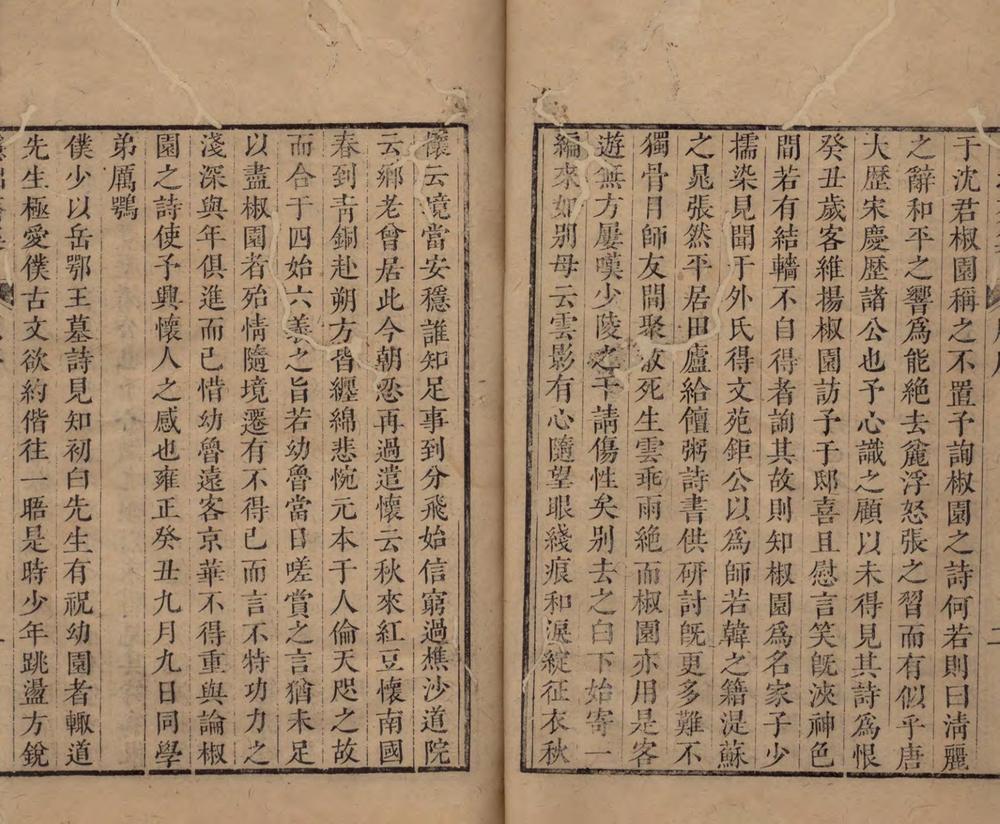 于沈君椒園稱之不置予詢椒園之詩何若則曰淸麗
之辭和平之響爲能絶去麄浮怒張之習而有似乎唐
大歷宋慶歷諸公也予心識之顧以未得見其詩爲恨
癸丑歲客維揚椒園訪予于邸喜且慰言笑旣浹神色
間若有結轖不自得者詢其故則知椒園爲名家子少
擩染見聞于外氏得文苑鉅公以爲師若韓之籍湜蘇
之晁張然平居田廬給饘粥詩書供硏討旣更多難不
獨骨月師友間聚散死生雲乖雨絶而椒園亦用是客
遊無方屢嘆少陵之干請傷性矣别去之白下始寄一
編來如别母云雲影有心隨望眼綫痕和淚綻征衣秋
懷云境當安穩誰知足事到分飛始信窮過樵沙道院
云鄉老曾居此今朝恐再過遣懷云秋來紅豆懷南國
春到靑銅赴朔方皆纒綿悲惋元本于人倫天咫之故
而合于四始六義之旨若幼魯當日嗟賞之言猶未足
以盡椒園者殆情隨境遷有不得已而言不特功力之
淺深與年俱進而已惜幼魯遠客京華不得重與論椒
園之詩使予興懷人之感也雍正癸丑九月九日同學
弟厲鶚
僕少以岳鄂王墓詩見知初白先生有祝幼園者輙道
先生極愛僕古文欲約偕往一晤是時少年跳盪方銳